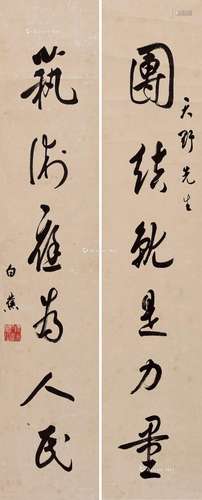 團結就是力量
天野先生
藝術應為人民
白蕉